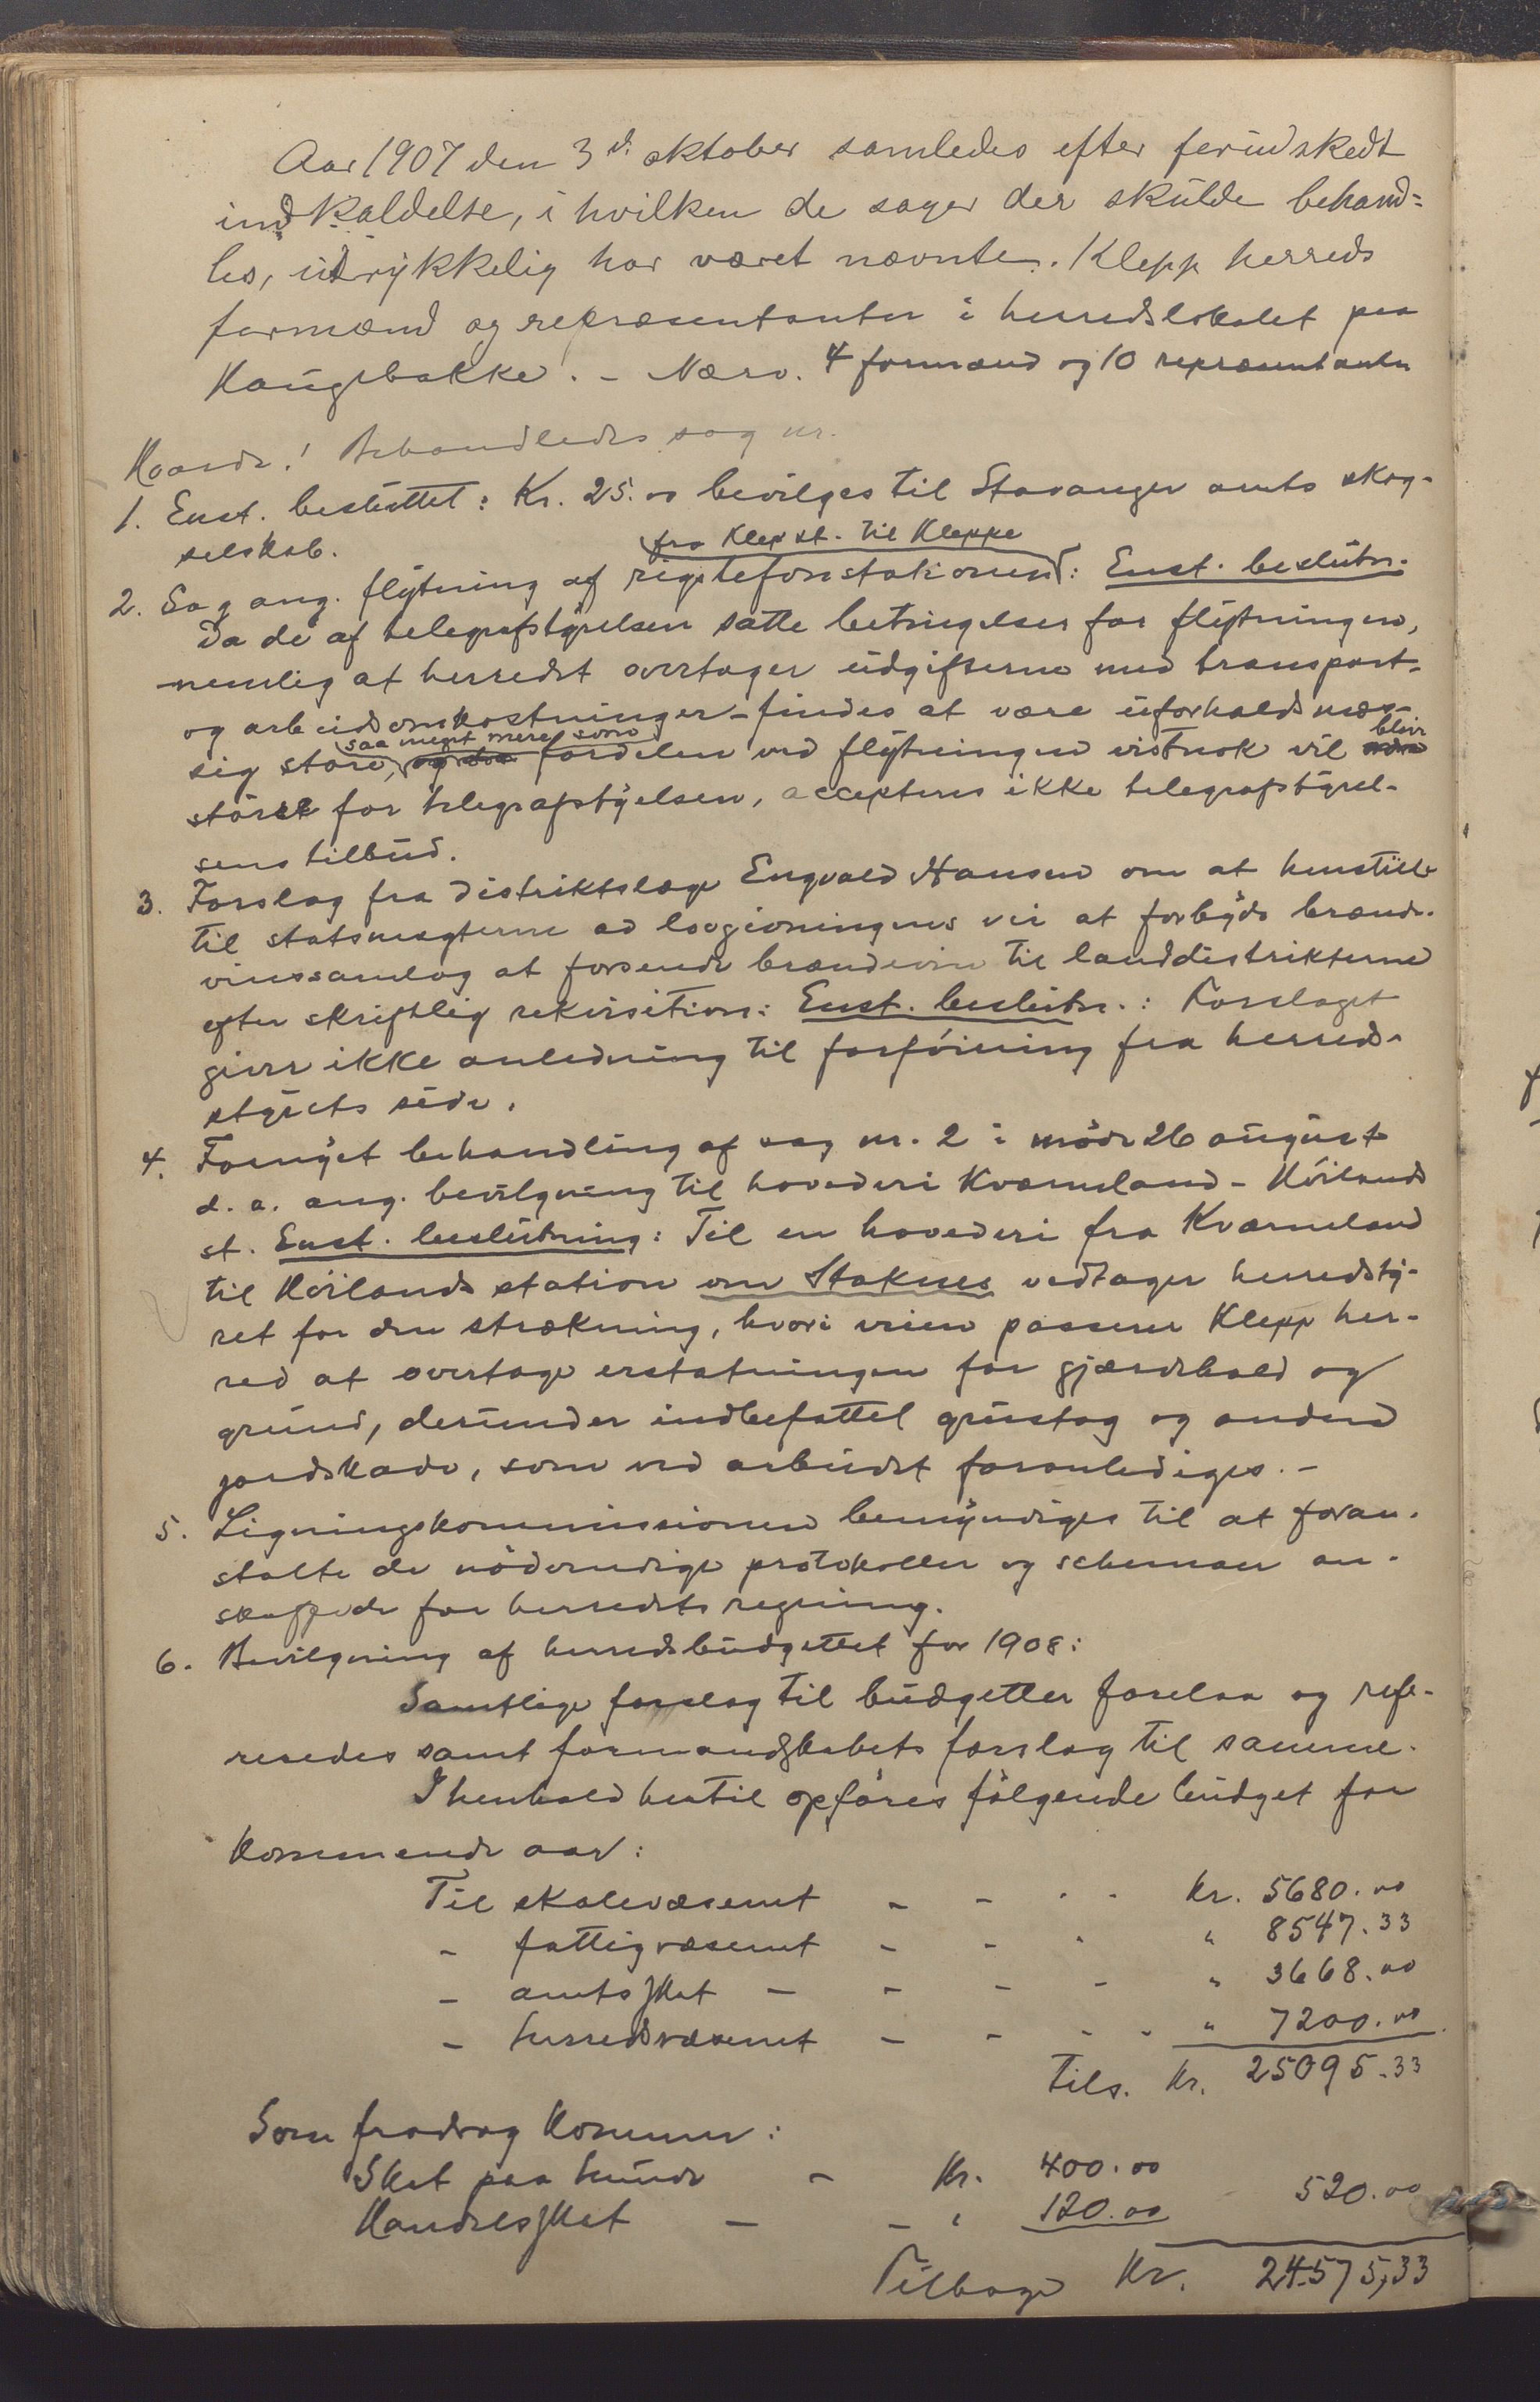 Aar 1907 den 3d. oktober samledes efter forudskedt
indkaldelse, i hvilken de sager der skulde behand=
les, udrykkelig har været nævnte. Klepp herreds
formænd og repræsentanter i herredslokalet paa
Haugebakke. – Nærv. 4 formænd og 10 repræsentanter
Hvorda! Behandledes sag nr.
1. Enst. besluttet: Kr. 25.00 bevilges til Stavanger amts skog-
selskab.
fra Klep st. til Kleppe
2. Sag ang. flytning af rigstefonstationen: Enst. beslutn.
Da de af telegrafstyrelsen satte betingelser for flytningen,
nemlig at herredet overtager udgifterne med transport-
og arbeidsomkostninger – findes at være uforholdsmæs-
saa meget mere som
blive
sig store, og da fordelen ved flytningen vistnok vil
størst for telegrafstyelsen, accepteres ikke telegrafstyrel-
sens tilbud.
3. Forslag fra distriktslæge Engvald Hansen om at henstille
til statsmagterne ad lovgivningens vei at forbyde brænde-
vinssamlag at forsende brændevin til landdistrikterne
efter skriftlig rekvisition: Enst. beslutn.: Forslaget
giver ikke anledning til forføining fra herreds-
styrets side.
4. Fornyet behandling af sag nr. 2 i møde 26 august
d. a. ang. bevilgning til hovedvei Kværneland – Høilands
st. Enst. beslutning: Til en hovedvei fra Kværneland
til Høilands station om Staknes vedtager herredsty-
ret for den strækning, hvori veien passerer Klepp her-
red at overtage erstatningen for gjærdehold og
grund, derunder indbefattet grustag og anden
jordskade, som ved arbeidet foranlediges. –
5. Ligningskommissionen bemyndiges til at foran-
stalte de nødvendige protokoller og schemaer an-
skaffede for herredets regning.
6. Bevilgning af herredsbudgettet for 1908:
Samtlige forslag til budgetter forelaa og refe-
reredes samt formandskabets forslag til samme.
I henhold hertil opføres følgende budget for
kommende aar:
Til skolevæsenet – – - - Kr. 5680.00
– fattigvæsenet – – - " 8547.33
– amtsskat – – – – " 3668.00
– herredsvæsenet – – - - " 7200.00
Tils. Kr. 25095.33
Som fradrag kommer:
Skat paa hunde – Kr. 400.00
Handelsskat – – " 120.00 520.00
Tilbage Kr. 24575,33